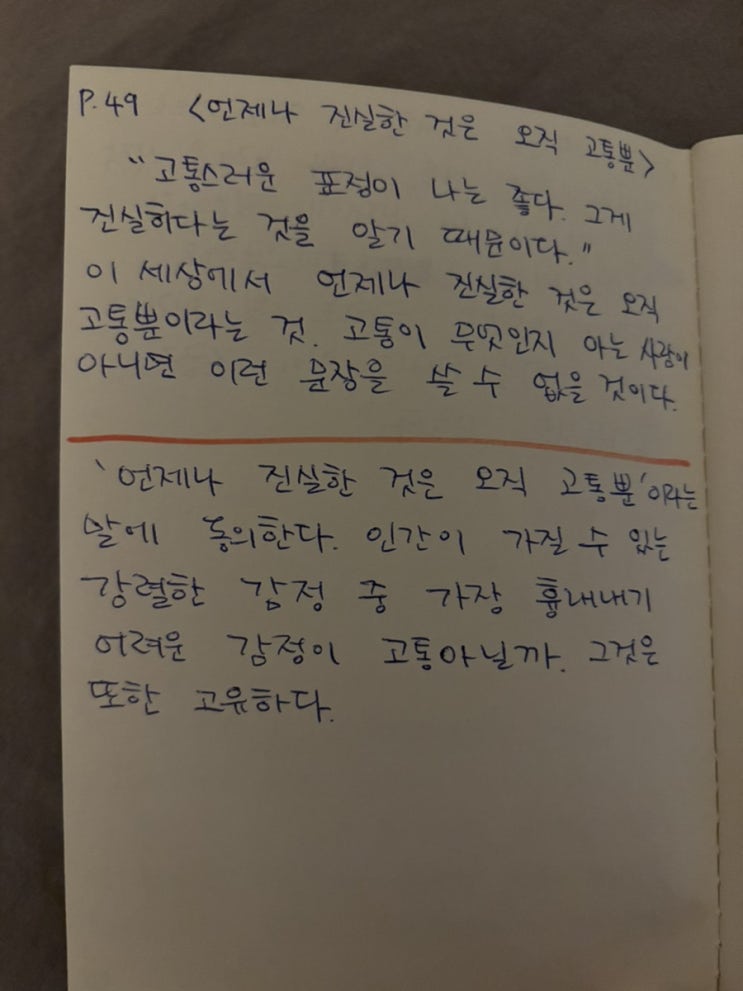 P.49 <언제나 진실한 것은 오직 고통뿐>
"고통스러운 표정이 나는 좋다. 그게
진실하다는 것을 알기 때문이다."
이 세상에서 언제나 진실한 것은 오직
고통뿐이라는 것. 고통이 무엇인지 아는 사람이
아니면 이런 문장을 쓸 수 없을 것이다.
'언제나 진실한 것은 오직 고통뿐'이라는
말에 동의한다. 인간이 가질 수 있는
강렬한 감정 중 가장 흉내내기
어려운 감정이 고통아닐까. 그것은
또한 고유하다.